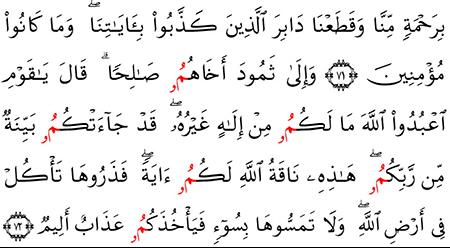 بِرَحْمَةٖ مِّنَّا وَقَطَعْنَا دَابِرَ ٱلَّذِينَ كَذَّبُواْ بِـَٔايَٰتِنَاۖ وَمَا كَانُواْ
مُؤْمِنِينَ ٧١ وَإِلَىٰ ثَمُودَ أَخَاهُمُۥ صَٰلِحٗاۚ قَالَ يَٰقَوْمِ
ٱعْبُدُواْ ٱللَّهَ مَا لَكُمُۥ مِنْ إِلَٰهٍ غَيْرُهُۥۖ قَدْ جَآءَتْكُمُۥ بَيِّنَةٞ
مِّن رَّبِّكُمُۥۖ هَٰذِهِۦ نَاقَةُ ٱللَّهِ لَكُمُۥ ءَايَةٗۖ فَذَرُوهَا تَأْكُلْ
فِىٓ أَرْضِ ٱللَّهِۖ وَلَا تَمَسُّوهَا بِسُوٓءٖ فَيَأْخُذَكُمُۥ عَذَابٌ أَلِيمٞ ٧٢